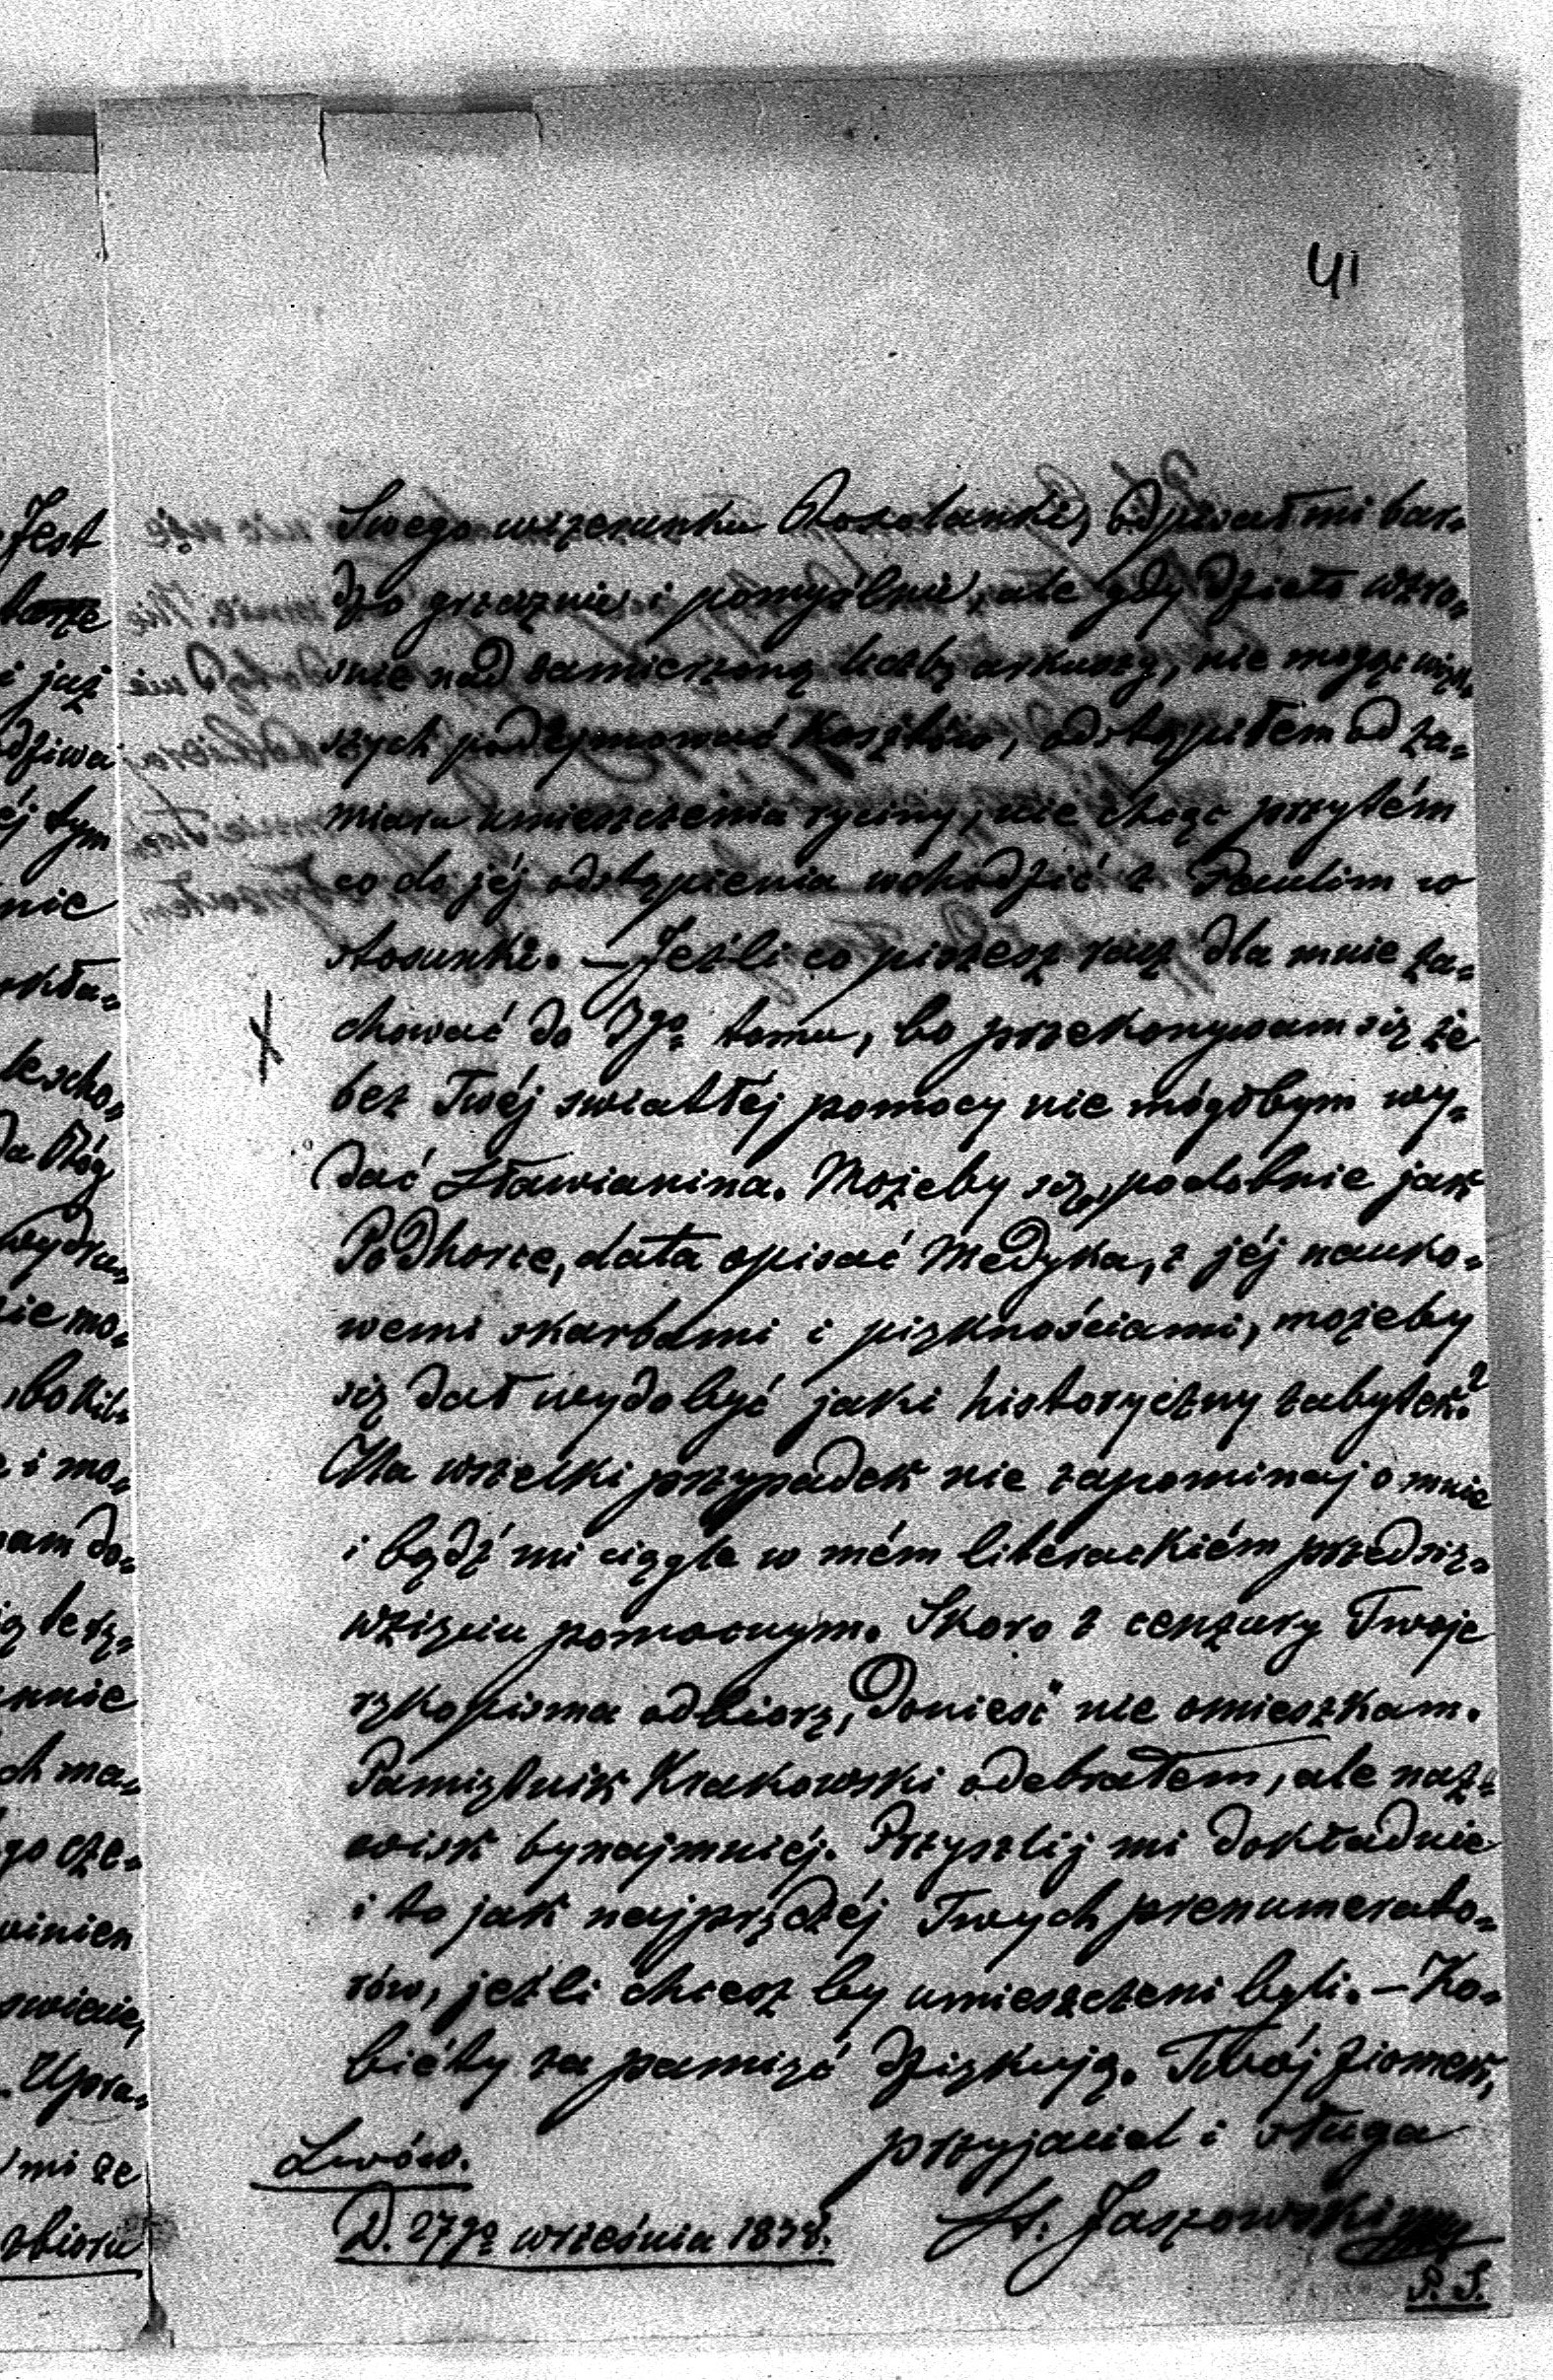 41
Swego wizerunku Roxolanki, odpisał mi bar-
dzo grzecznie i pomyślnie, ale gdy dzieło wzro-
snie nad zamierzoną liczbę arkuszy, nie mogąc więk-
szych podejmować kosztów, odstąpiłem od za-
miaru umieszczenia ryciny, nie chcąc przytém
co do jéj odstąpienia wchodzić z Paulim w
stosunki. — Jeźli co piszesz racz dla mnie za-
chować do 3go tomu, bo przekonywam się że
bez Twéj swiatłej pomocy nie mógłbym wy-
dać Sławianina. Możeby się, podobnie jak
Podhorce, dała opisać Medyka, z jéj nauko-
wemi skarbami i pięknościami, możeby
się dał wydobyć jaki historyczny zabytek?
Na wszelki przypadek nie zapominaj o mnie
i bądź mi ciągle w mém literackiém przedsię-
wzięciu pomocnym. Skoro z cenzury Twoje
rękopisma odbiorę, donieść nie omieszkam.
Pamiętnik Krakowski odebrałem, ale naz-
wisk bynajmniéj. Przyszlij mi dokładnie
i to jak najprędzéj Twych prenumerato-
rów, jeźli chcesz by umieszczeni byli. — Ko-
biéty za pamięć dziękują. Twój ziomek,
przyjaciel i sługa
Lwów.
St. Jaszowski
D. 27go września 1838.
P. S.